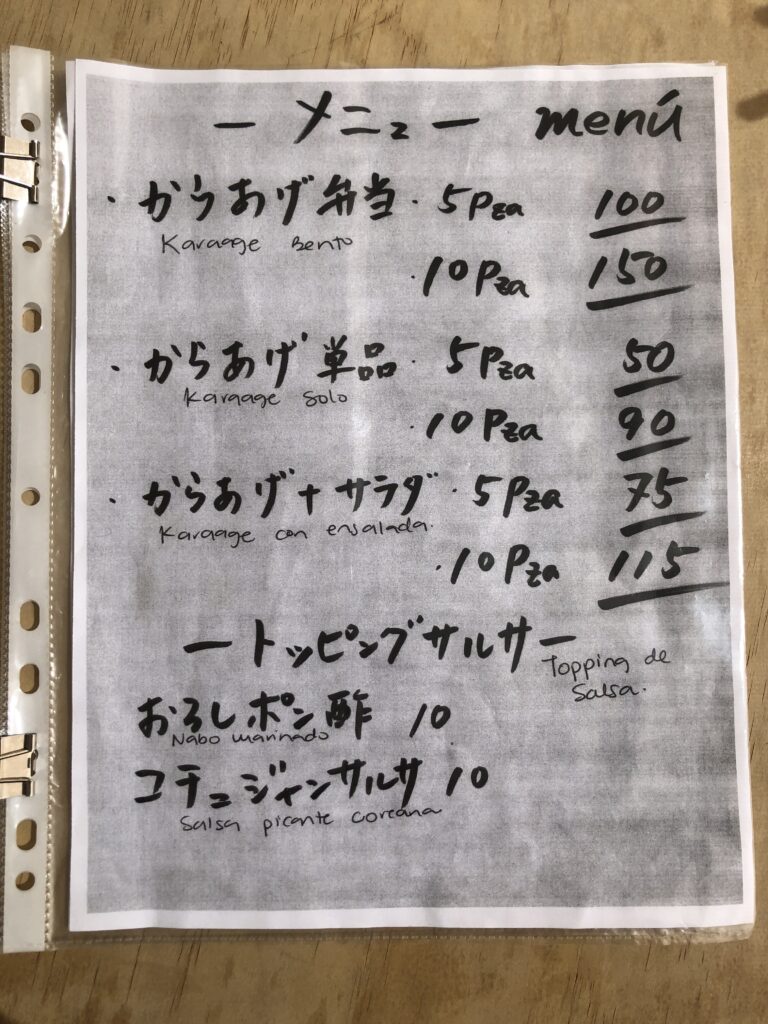 ー メニュ ー menú
・からあげ弁当・5Pza 100
Karaage Bento
・10Pza 150
・からあげ単品・5Pza 50
Karaage Solo
・10Pza 90
・からあげ+サラダ・5Pza 75
Karaage con ensalada.
・10Pza 115
ートッピングサルサー
Topping de
Salsa.
おろしポン酢 10
Nabo marinado
コチュジャンサルサ 10
Salsa picante coreana